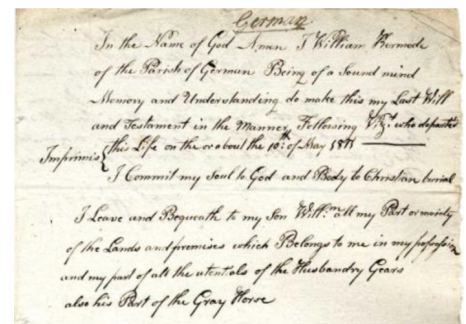 German
In the Name of God Amen I William Kermode
of the Parish of German Being of a Sound mind
Memory and Understanding do make this my Last Will
and Testament in the Manner Following Vizt. who departed
this Life on the or about the 10th. of May 1811
Imprimis
I Commit my Soul to God and Body to Christian burial
I Leave and Bequeath to my Son Willm. all my Part or moiety
of the Lands and premises which Belongs to me in my possession
and my part of all the utentials of the Husbandry Gears
also his Part of the Gray Horse